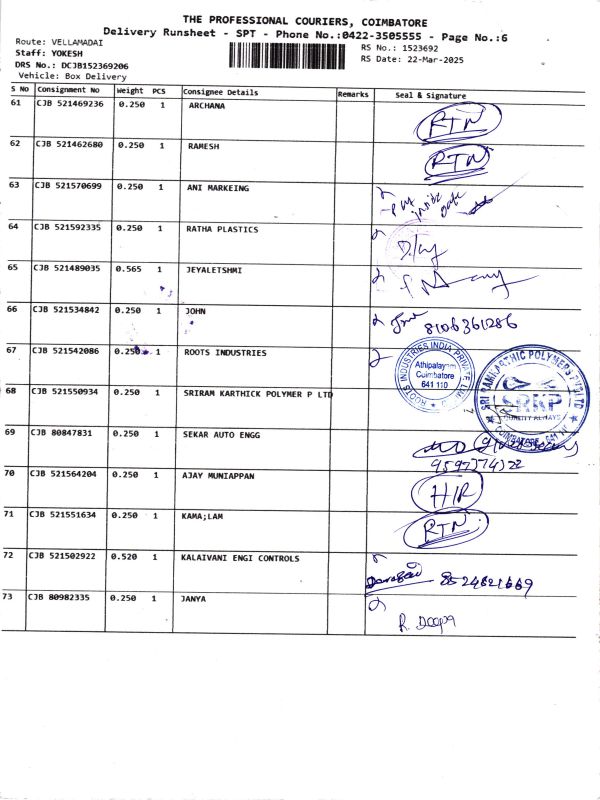 THE PROFESSIONAL COURIERS, COIMBATORE
Delivery Runsheet - SPT - Phone No.:0422-3505555 - Page No.:6
Route: VELLAMADAI
Staff: YOKESH
DRS No.: DCJB152369206
Vehicle: Box Delivery
RS No.: 1523692
RS Date: 22-Mar-2025
S No Consignment No Weight PCS Consignee Details Remarks Seal & Signature
61 CJB 521469236 0.250 1 ARCHANA RTN
62 CJB 521462680 0.250 1 RAMESH RTN
63 CJB 521570699 0.250 1 ANI MARKEING
inside
64 CJB 521592335 0.250 1 RATHA PLASTICS
65 CJB 521489035 0.565 1 JEYALETSHMI
66 CJB 521534842 0.250 1 JOHN 8106361286
67 CJB 521542086 0.250 1 ROOTS INDUSTRIES
ROOTS INDUSTRIES INDIA PRIVATE LIMITED
Athipalayam
Coimbatore
641 110
68 CJB 521550934 0.250 1 SRIRAM KARTHICK POLYMER P LTD
SRI RAMKARTHIC POLYMERS PVT LTD
SRKP
QUALITY ALWAYS
COIMBATORE - 641 111
69 CJB 80847831 0.250 1 SEKAR AUTO ENGG
9597374322
70 CJB 521564204 0.250 1 AJAY MUNIAPPAN H/R
71 CJB 521551634 0.250 1 KAMA;LAM RTN
72 CJB 521502922 0.520 1 KALAIVANI ENGI CONTROLS 8524821669
73 CJB 80982335 0.250 1 JANYA R. Deepa